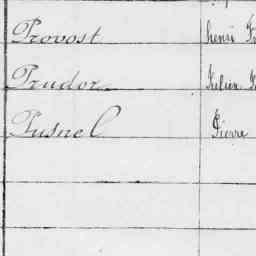 Provost henri
Prudor Julien
Pusnel Pierre